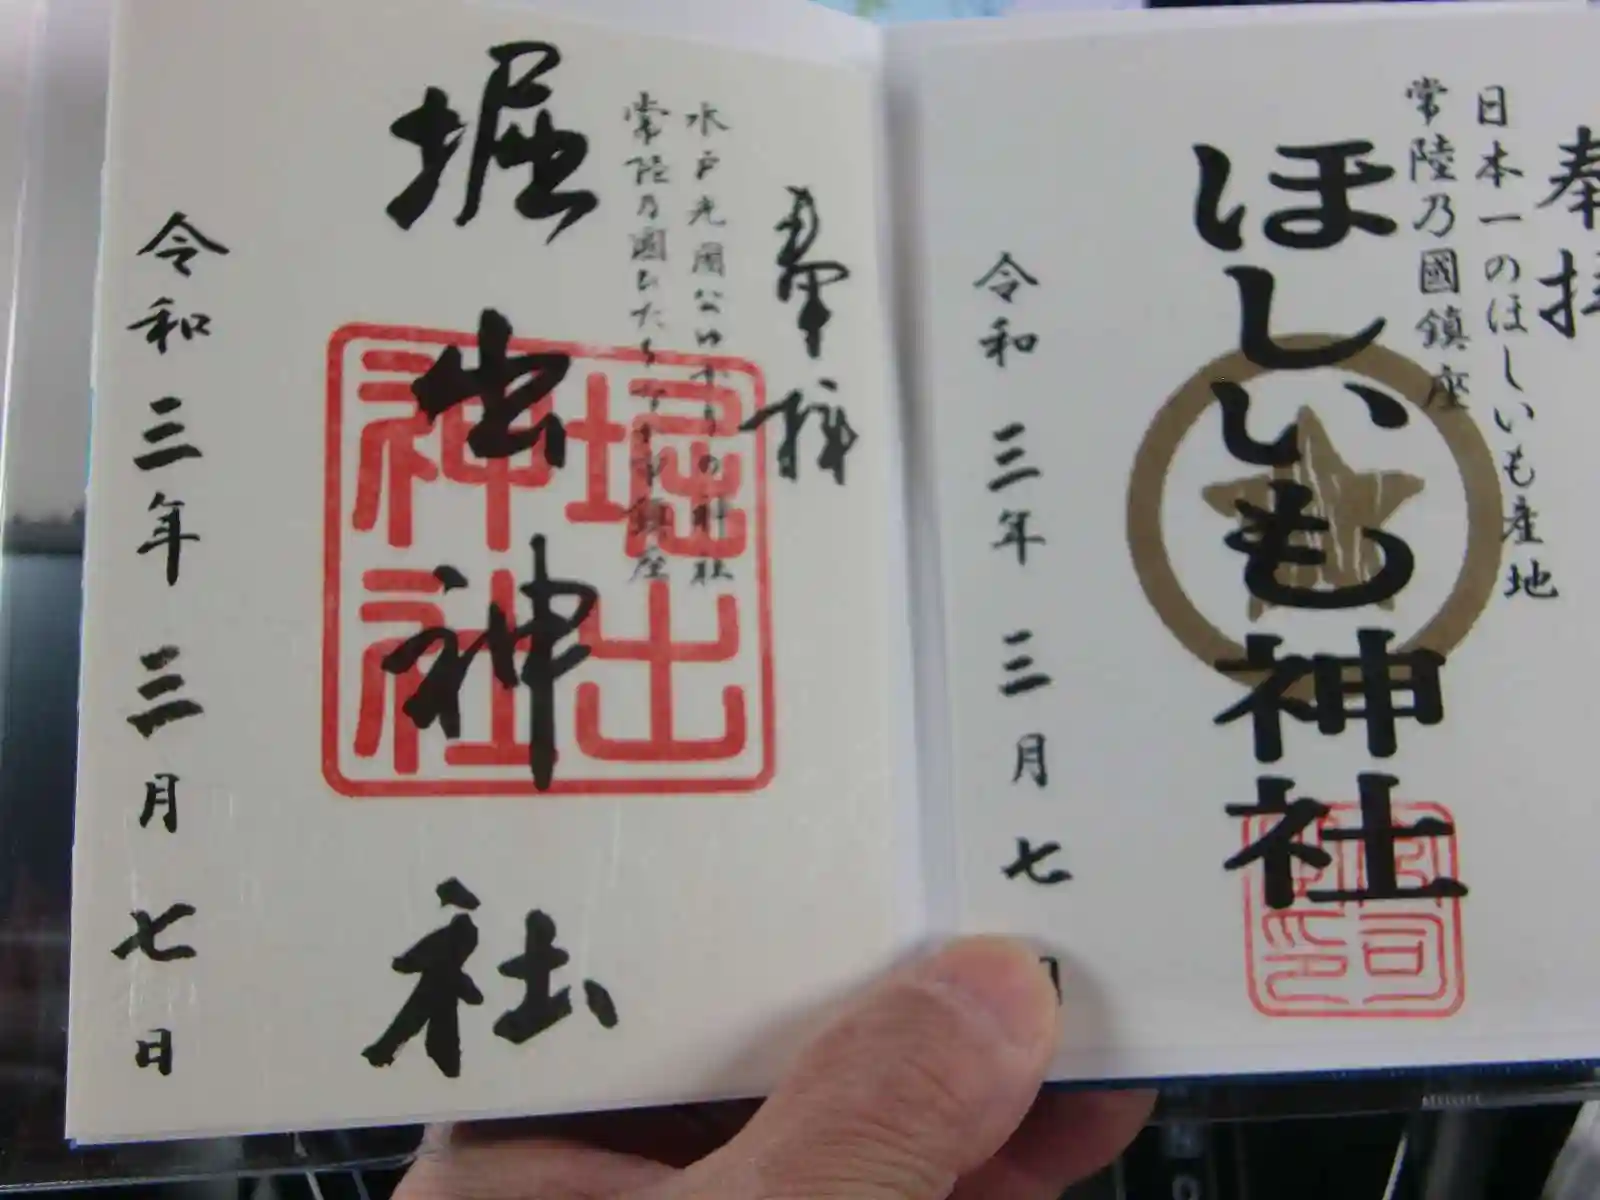 奉拝
日本一のほしいも産地
常陸乃國鎮座
ほしいも神社
令和三年三月七日
宮司
奉拝
水戸光圀公ゆかりの神社
常陸乃國ひたちなか市鎮座
堀出神社
堀出
神社
令和三年三月七日